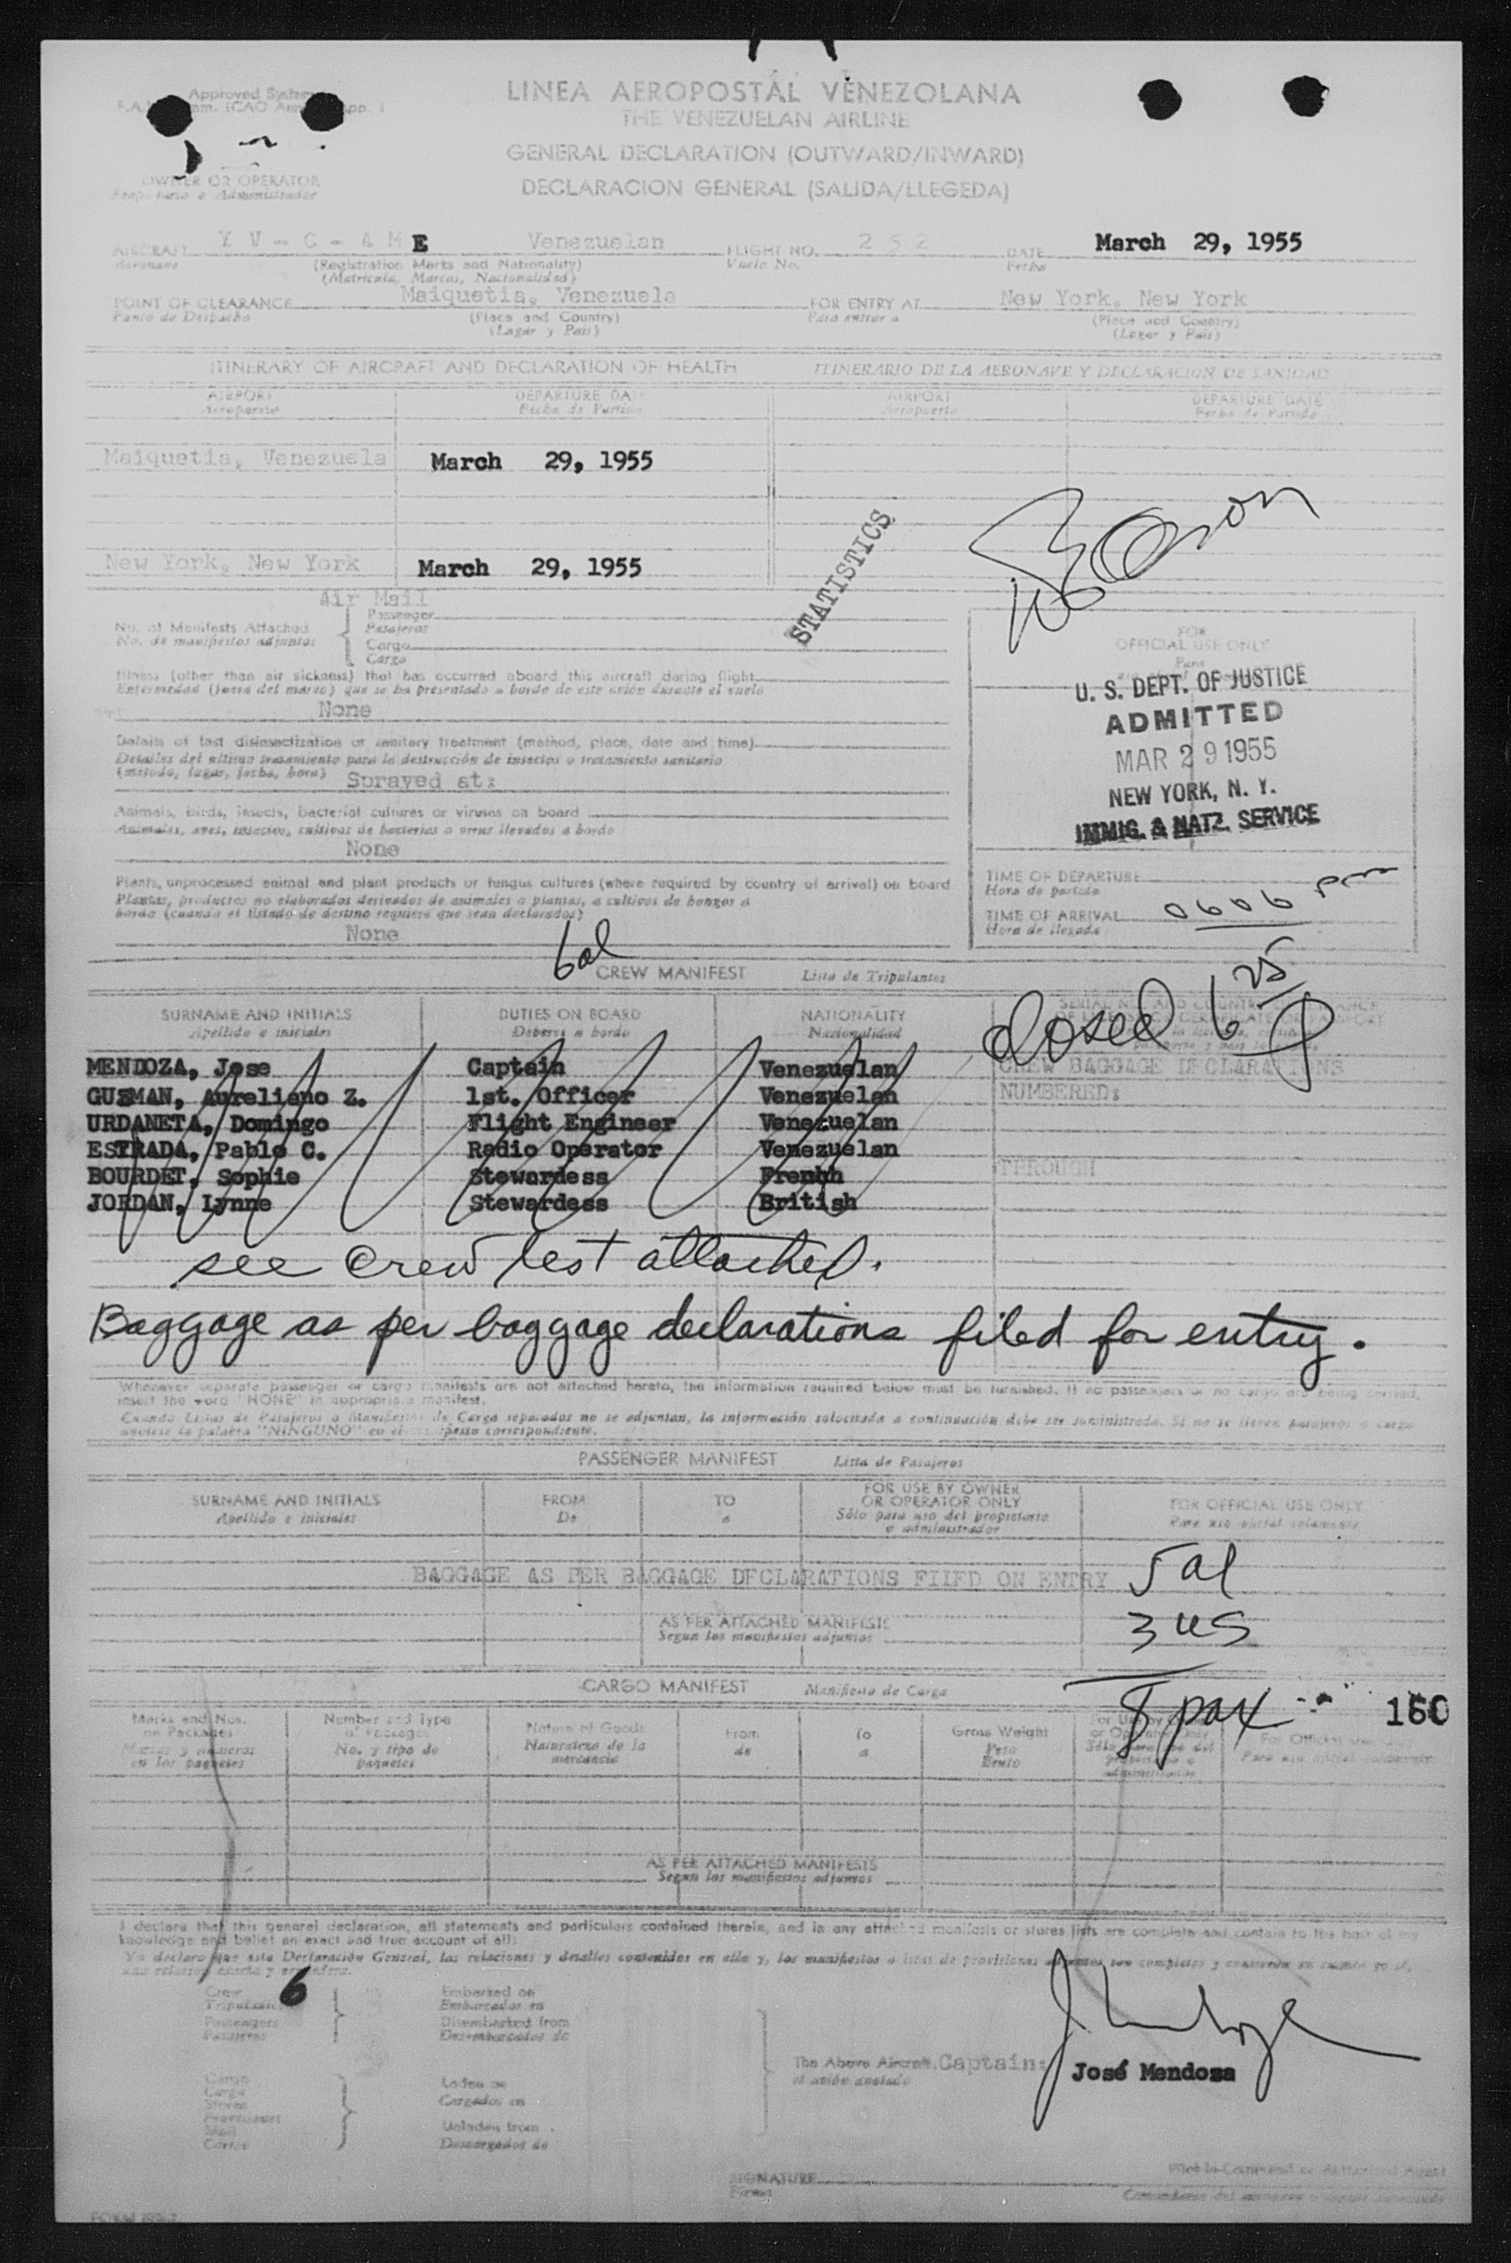 Approved System
LINEA AEROPOSTAL VENEZOLANA
THE VENEZUELAN AIRLINE
GENERAL DECLARATION (OUTWARD/INWARD)
DECLARACION GENERAL (SALIDA/LLEGEDA)
OWNER OR OPERATOR
AIRCRAFT Y V - C - A M E Venezuelan FLIGHT NO. 252 DATE March 29, 1955
Aeronave (Registration Marks and Nationality) Vuelo No. Fecha
(Matricula, Marcas, Nacionalidad)
POINT OF CLEARANCE Maiquetia, Venezuela FOR ENTRY AT New York, New York
Punto de Despacho (Place and Country) Para entrar a (Place and Country)
(Lugar y Pais) (Lugar y Pais)
ITINERARY OF AIRCRAFT AND DECLARATION OF HEALTH ITINERARIO DE LA AERONAVE Y DECLARACION DE SANIDAD
AIRPORT DEPARTURE DATE AIRPORT DEPARTURE DATE
Aeropuerto Fecha de Partida Aeropuerto Fecha de Partida
Maiquetia, Venezuela March 29, 1955
STATISTICS
New York, New York March 29, 1955
Air Mail
No. of Manifests Attached Passenger
No. de manifiestos adjuntos Pasajeros
Cargo
Cargo
FOR
OFFICIAL USE ONLY
Para
Illness (other than air sickness) that has occurred aboard this aircraft during flight
Enfermedad (fuera del mareo) que se ha presentado a bordo de este avión durante el vuelo
None
U. S. DEPT. OF JUSTICE
ADMITTED
MAR 29 1955
NEW YORK, N. Y.
IMMIG. & NATZ. SERVICE
Details of last disinsectization or sanitary treatment (method, place, date and time)
Detalles del ultimo tratamiento para la destrucción de insectos o tratamiento sanitario
(metodo, lugar, fecha, hora) Sprayed at:
Animals, birds, insects, bacterial cultures or viruses on board
Animales, aves, insectos, cultivos de bacterias o virus llevados a bordo
None
Plants, unprocessed animal and plant products or fungus cultures (where required by country of arrival) on board
Plantas, productos no elaborados derivados de animales o plantas, o cultivos de hongos a
bordo (cuando el Estado de destino requiere que sean declarados)
None
TIME OF DEPARTURE
Hora de partida
TIME OF ARRIVAL 0606 pm
Hora de llegada
6al
CREW MANIFEST Lista de Tripulantes
closed 6 25 P
SURNAME AND INITIALS DUTIES ON BOARD NATIONALITY
Apellido e iniciales Deberes a bordo Nacionalidad
MENDOZA, Jose Captain Venezuelan CREW BAGGAGE DECLARATIONS
GUZMAN, Aureliano Z. 1st. Officer Venezuelan NUMBERED:
URDANETA, Domingo Flight Engineer Venezuelan
ESTRADA, Pablo C. Radio Operator Venezuelan
BOURDET, Sophie Stewardess French THROUGH
JORDAN, Lynne Stewardess British
see crew lest attached.
Baggage as per baggage declarations filed for entry.
Whenever separate passenger or cargo manifests are not attached hereto, the information required below must be furnished. If no passengers or no cargo are being carried,
insert the word "NONE" in appropriate manifest.
Cuando Listas de Pasajeros o Manifiestos de Carga separados no se adjuntan, la información solicitada a continuación debe ser suministrada. Si no se llevan pasajeros o carga
anotese la palabra "NINGUNO" en el correspondiente.
PASSENGER MANIFEST Lista de Pasajeros
SURNAME AND INITIALS FROM TO FOR USE BY OWNER OR OPERATOR ONLY FOR OFFICIAL USE ONLY
Apellido e iniciales De a Sólo para uso del propietario o administrador Para uso oficial solamente
BAGGAGE AS PER BAGGAGE DECLARATIONS FILED ON ENTRY 5 al
AS PER ATTACHED MANIFESTS 3 US
Segun los manifiestos adjuntos
CARGO MANIFEST Manifiesto de Carga
8 pax 160
Marks and Nos. on Packages Number and Type of Packages Nature of Goods From To Gross Weight
Marcas y números en los paquetes No. y tipo de paquetes Naturaleza de la mercancia de a Peso Bruto
AS PER ATTACHED MANIFESTS
Segun los manifiestos adjuntos
I declare that this general declaration, all statements and particulars contained therein, and in any attached manifests or stores lists are complete and contain to the best of my
knowledge and belief an exact and true account of all:
Yo declaro que esta Declaración General, las relaciones y detalles contenidos en ella y, los manifiestos o listas de provisiones adjuntos son completos
Crew 6 Embarked on
Tripulación Embarcados en
Passengers Disembarked from
Pasajeros Desembarcados de
The Above Aircraft, Captain: José Mendoza
el avión anotado
Cargo Laden on
Carga Cargados en
Stores
Mail Unladen from
Correo Descargados de
SIGNATURE
Firma